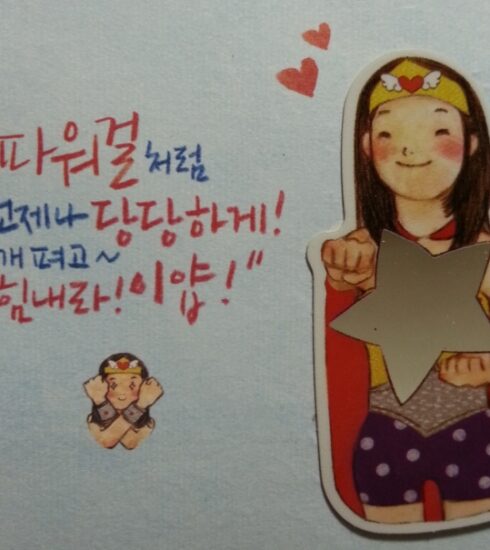 파워걸처럼
언제나 당당하게!
개 펴고~
힘내라! 이얍!"